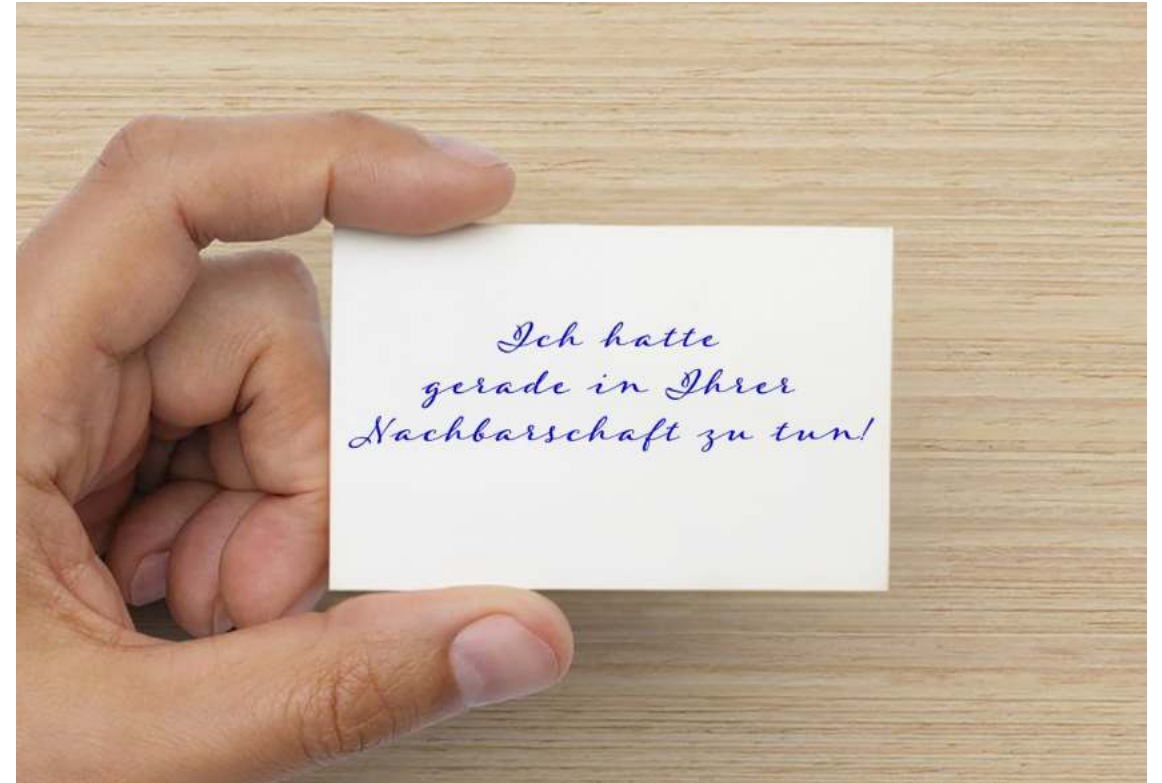 Ich hatte
gerade in Ihrer
Nachbarschaft zu tun!